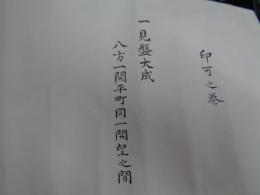 印可之巻
一見盤大成
八方一関平町同一開望之間